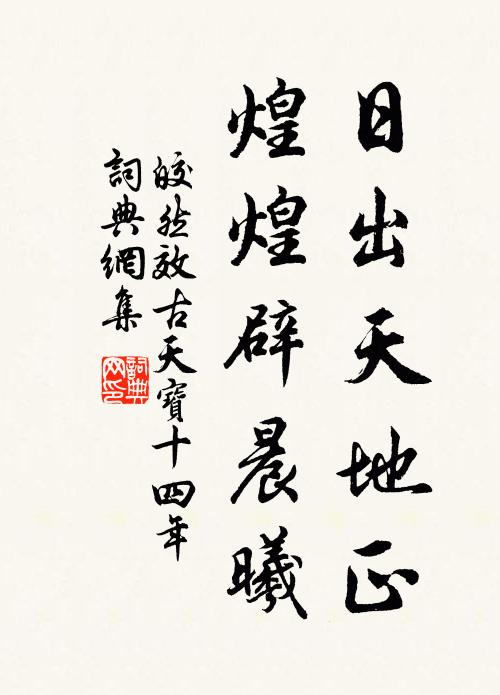 日出天地正
煌煌辟晨曦
皎然效古天寶十四年
詞典網集
詞典网印